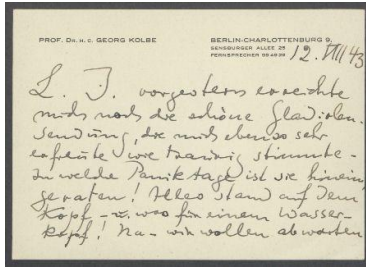 PROF. DR. H. C. GEORG KOLBE
BERLIN-CHARLOTTENBURG 9,
SENSBURGER ALLEE 25
FERNSPRECHER
12. VIII 43
L. J. vorgestern erreichte
mich noch die schöne Gladiolen-
sendung, die mich ebenso sehr
erfreute wie traurig stimmte -
In welche Paniktage ist sie hinein
geraten! Alles stand auf dem
Kopf - u. was für einem Wasser-
kopf! Na - wir wollen abwarten